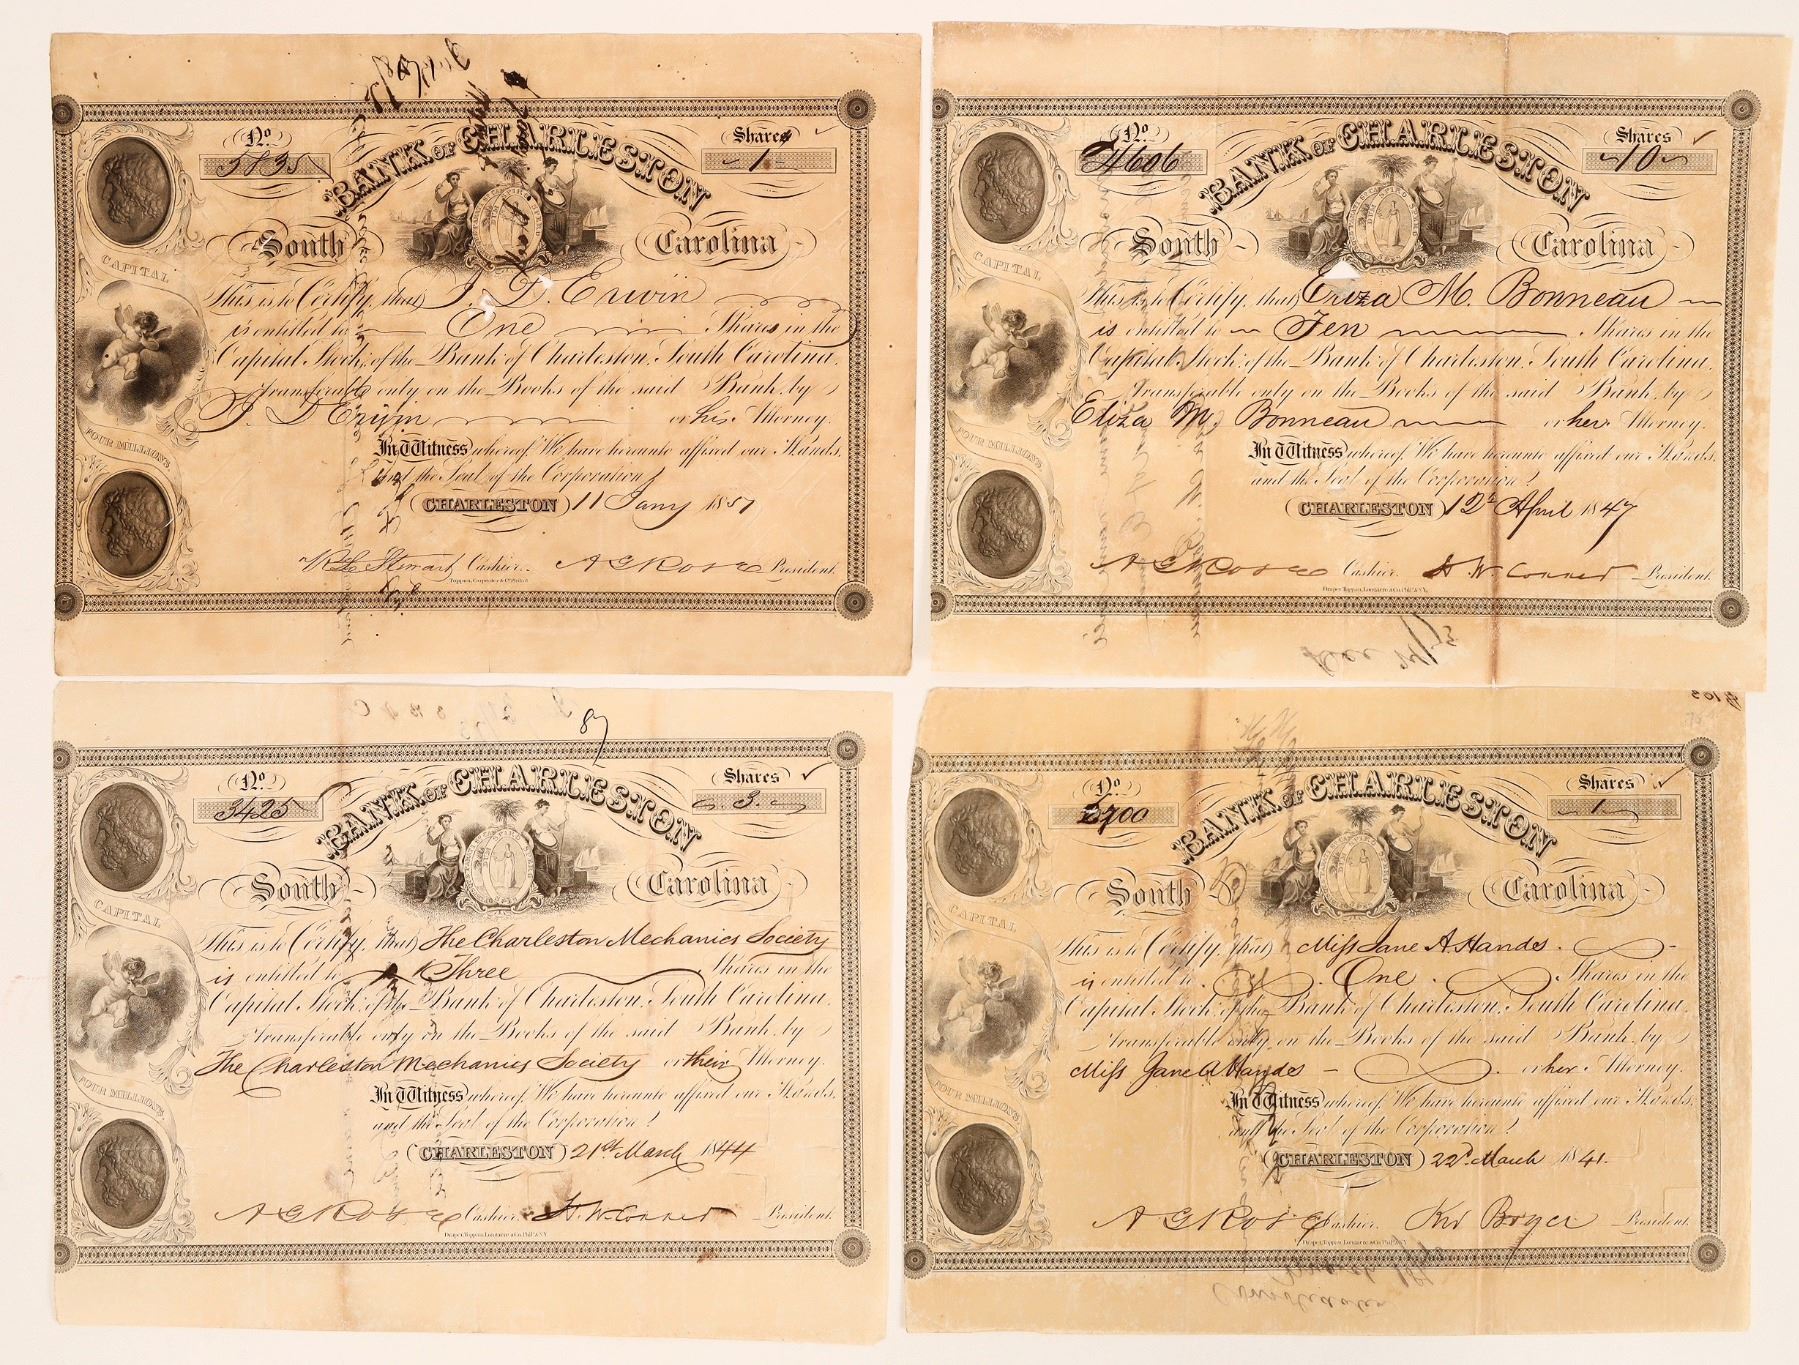 No. Shares
3835 1
BANK OF CHARLESTON
South Carolina
CAPITAL
This is to Certify, that J. D. Erwin
is entitled to One Shares in the
Capital Stock of the Bank of Charleston, South Carolina,
Transferable only on the Books of the said Bank, by
J. D Erwin or his Attorney.
FOUR MILLIONS
In Witness whereof We have hereunto affixed our Hands,
and the Seal of the Corporation
CHARLESTON 11 Jany 1851
Cashier. A G Rose President.
Toppan, Carpenter & Co.
No. Shares
4606 10
BANK OF CHARLESTON
South Carolina
CAPITAL
This is to Certify, that Eliza M. Bonneau
is entitled to Ten Shares in the
Capital Stock of the Bank of Charleston, South Carolina,
Transferable only on the Books of the said Bank, by
Eliza M. Bonneau or her Attorney.
FOUR MILLIONS
In Witness whereof We have hereunto affixed our Hands,
and the Seal of the Corporation
CHARLESTON 12th April 1847
A G Rose Cashier. H. W. Conner President.
Draper, Toppan, Longacre & Co. Phila. & N.Y.
87
No. Shares
3425 3
BANK OF CHARLESTON
South Carolina
CAPITAL
This is to Certify, that The Charleston Mechanics Society
is entitled to Three Shares in the
Capital Stock of the Bank of Charleston, South Carolina,
Transferable only on the Books of the said Bank, by
The Charleston Mechanics Society or their Attorney.
FOUR MILLIONS
In Witness whereof We have hereunto affixed our Hands,
and the Seal of the Corporation
CHARLESTON 21st March 1844
A G Rose Cashier. H. W. Conner President.
Draper, Toppan, Longacre & Co. Phila. & N.Y.
No. Shares
1
BANK OF CHARLESTON
South Carolina
CAPITAL
This is to Certify, that Miss Jane A. Handes.
is entitled to One Shares in the
Capital Stock of the Bank of Charleston, South Carolina,
Transferable only on the Books of the said Bank, by
Miss Jane A Handes or her Attorney.
FOUR MILLIONS
In Witness whereof We have hereunto affixed our Hands,
and the Seal of the Corporation
CHARLESTON 22d March 1841.
A G Rose Cashier. President.
Draper, Toppan, Longacre & Co. Phila. & N.Y.